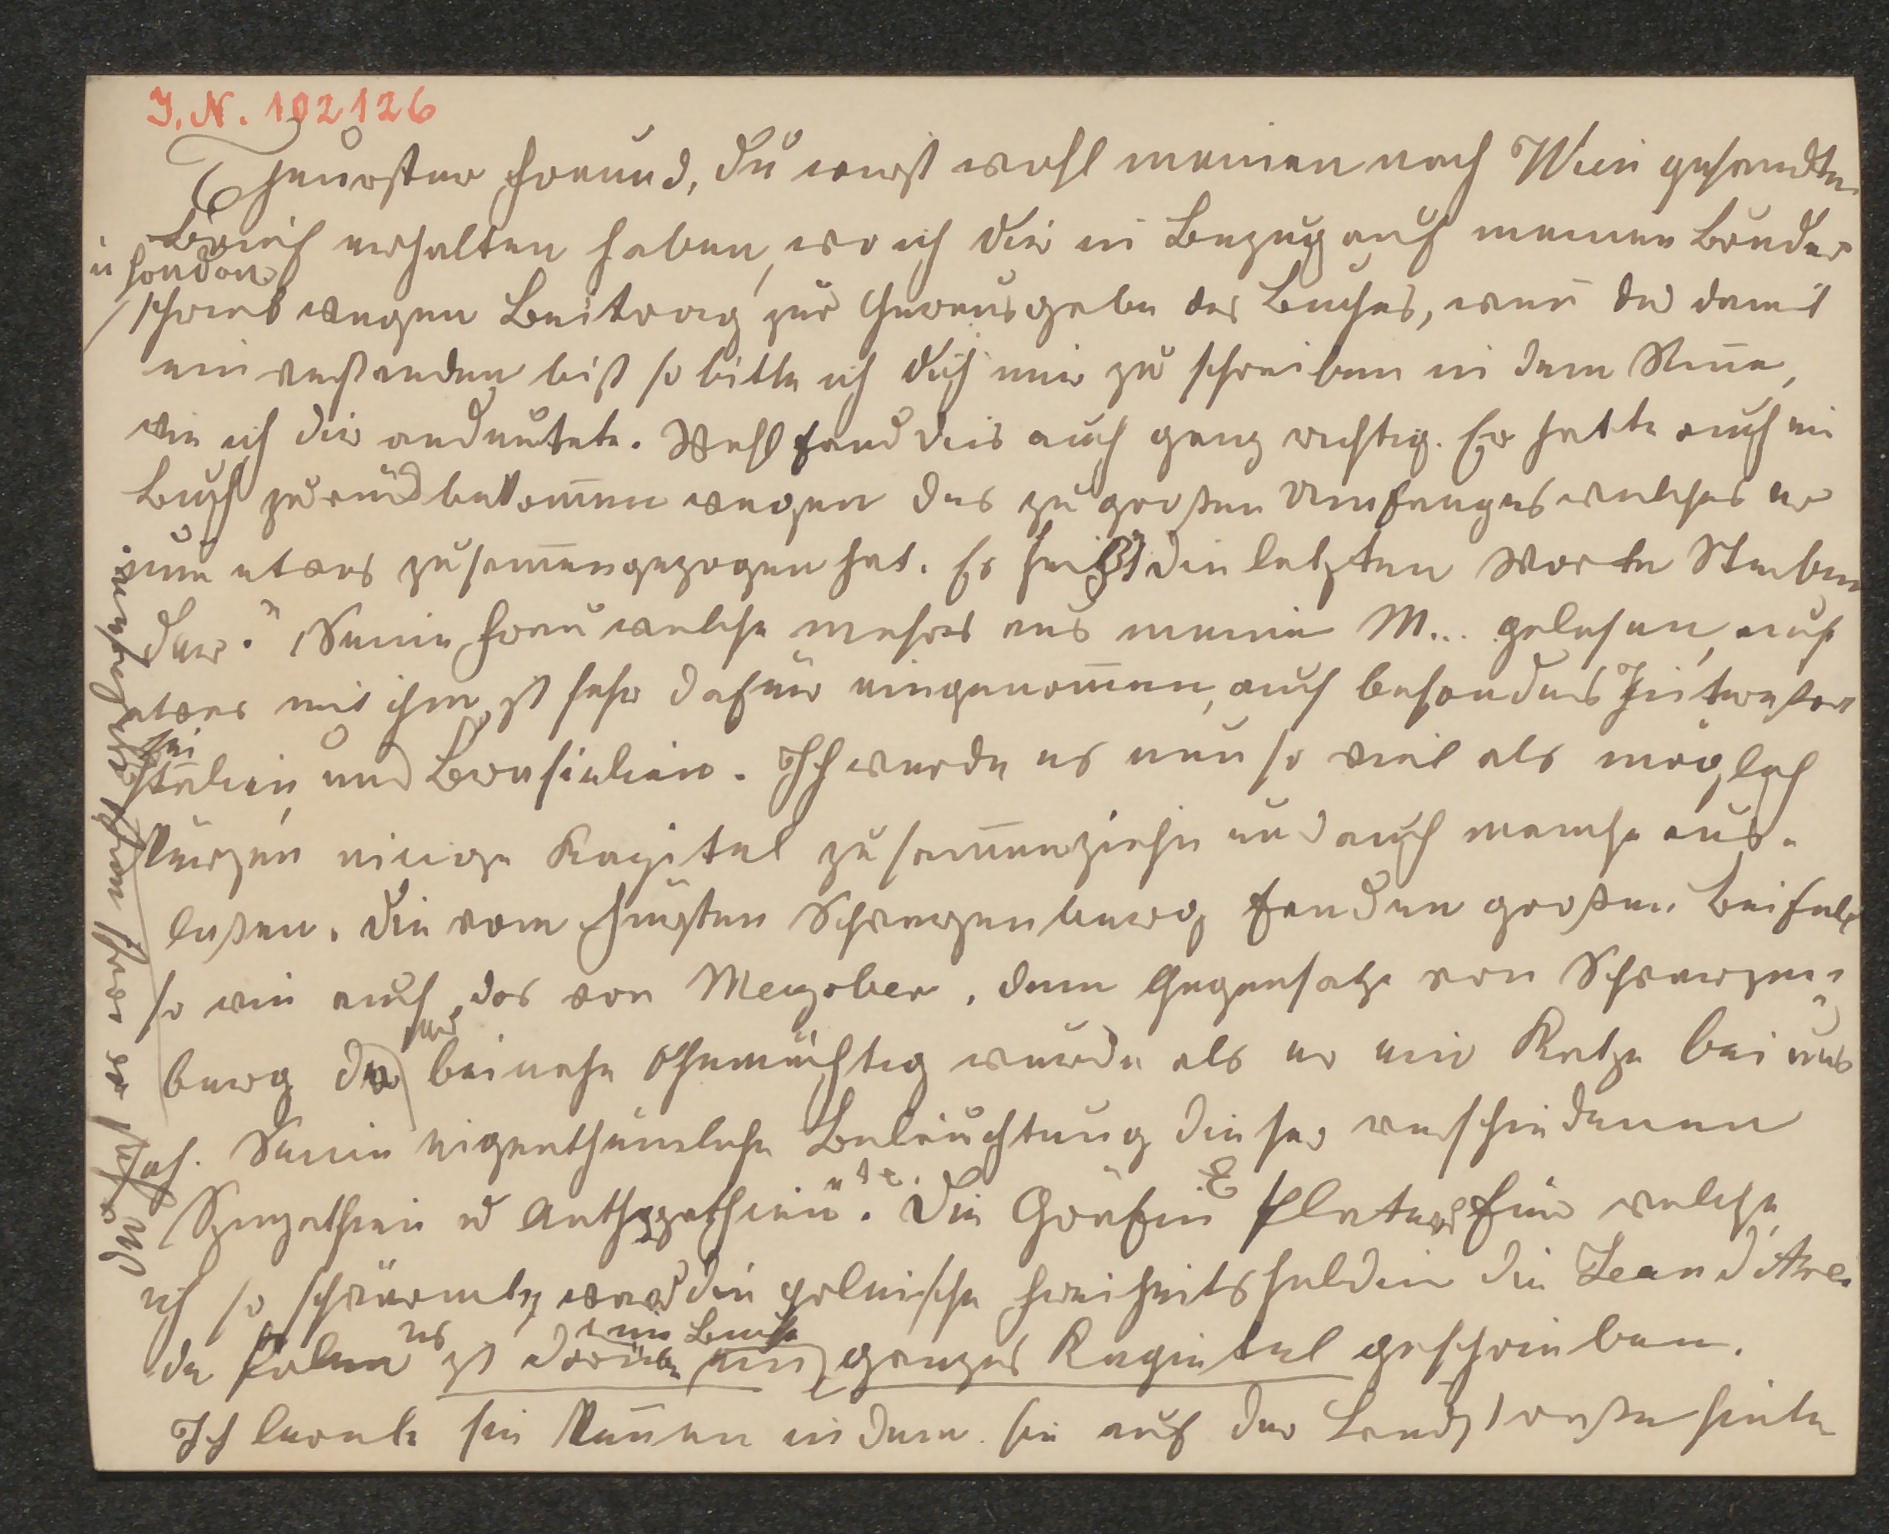 I. N. 102126
Theuerster Freund, Du wirst wohl meinen nach Wien gesandten
Brief erhalten haben, wo ich Dir in Bezug auf meinen Bruder
in London
schrieb wegen Beitrag zur Herausgabe des Buches, wen̄ du damit
einverstanden bist so bitte ich Dich mir zu schreiben in dem Sin̄e,
wie ich Dir andeutete. Wehl fand dies auch ganz richtig. Er hatte auch ein
Buch zurück bekom̄en wegen des zu großen Umfanges welches er
nun etwas zusam̄engezogen hat. Es heißt „die letzten Worte Sterben
der." Seine Frau welche mehres aus meine M... gelesen, auch
etwas mit ihm, ist sehr dafür eingenom̄en, auch besonders
sei
Italien, und Brasilien. Ich werde es nun so viel als möglich
kürzen einige Kapitel zusam̄enziehn und auch manche aus-
laßen. Die vom Fürsten Schwarzenberg fanden großen Beifall
so wie auch das von Meyerbeer, dem Gegensatze von Schwarzen-
berg der beinahe Ohnmächtig wurde als er eine Katze bei uns
sah. Seine eigenthümliche Beleuchtung dieser verschiedenen
Sympathien u Anthypathien". Die Gräfin E Plater für welche
ich so schwärmte, war die polnische Freiheitsheldin die Jean d'Arc
der Polen es ist darüber ein ganzes Kapietel geschrieben.
im Buche
Ich lernte sie ken̄en indem sie auf der Landstraße hinter